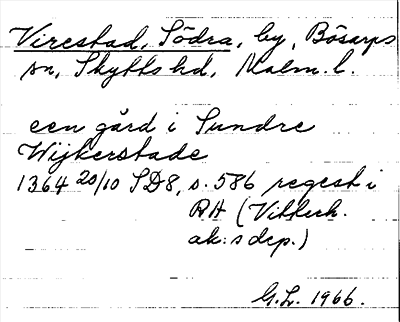 Virestad, Södra, by, Bösarps
sn, Skytts hd, Malm. l.
een gård i Sundre
Wijkerstade
1364 20/10 SD8, s. 586 regest i
RA (Vitterh.
ak:s dep.)
G.L. 1966.